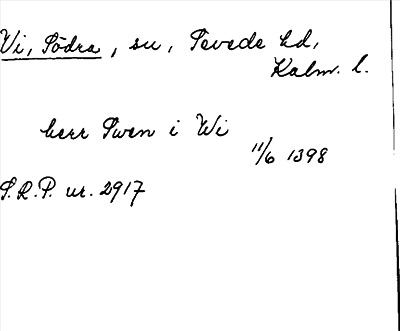 Vi, Södra, su, Sevede hd,
Kalm. l.
herr Swen i Wi
11/6 1398
S.R.P. nr. 2917